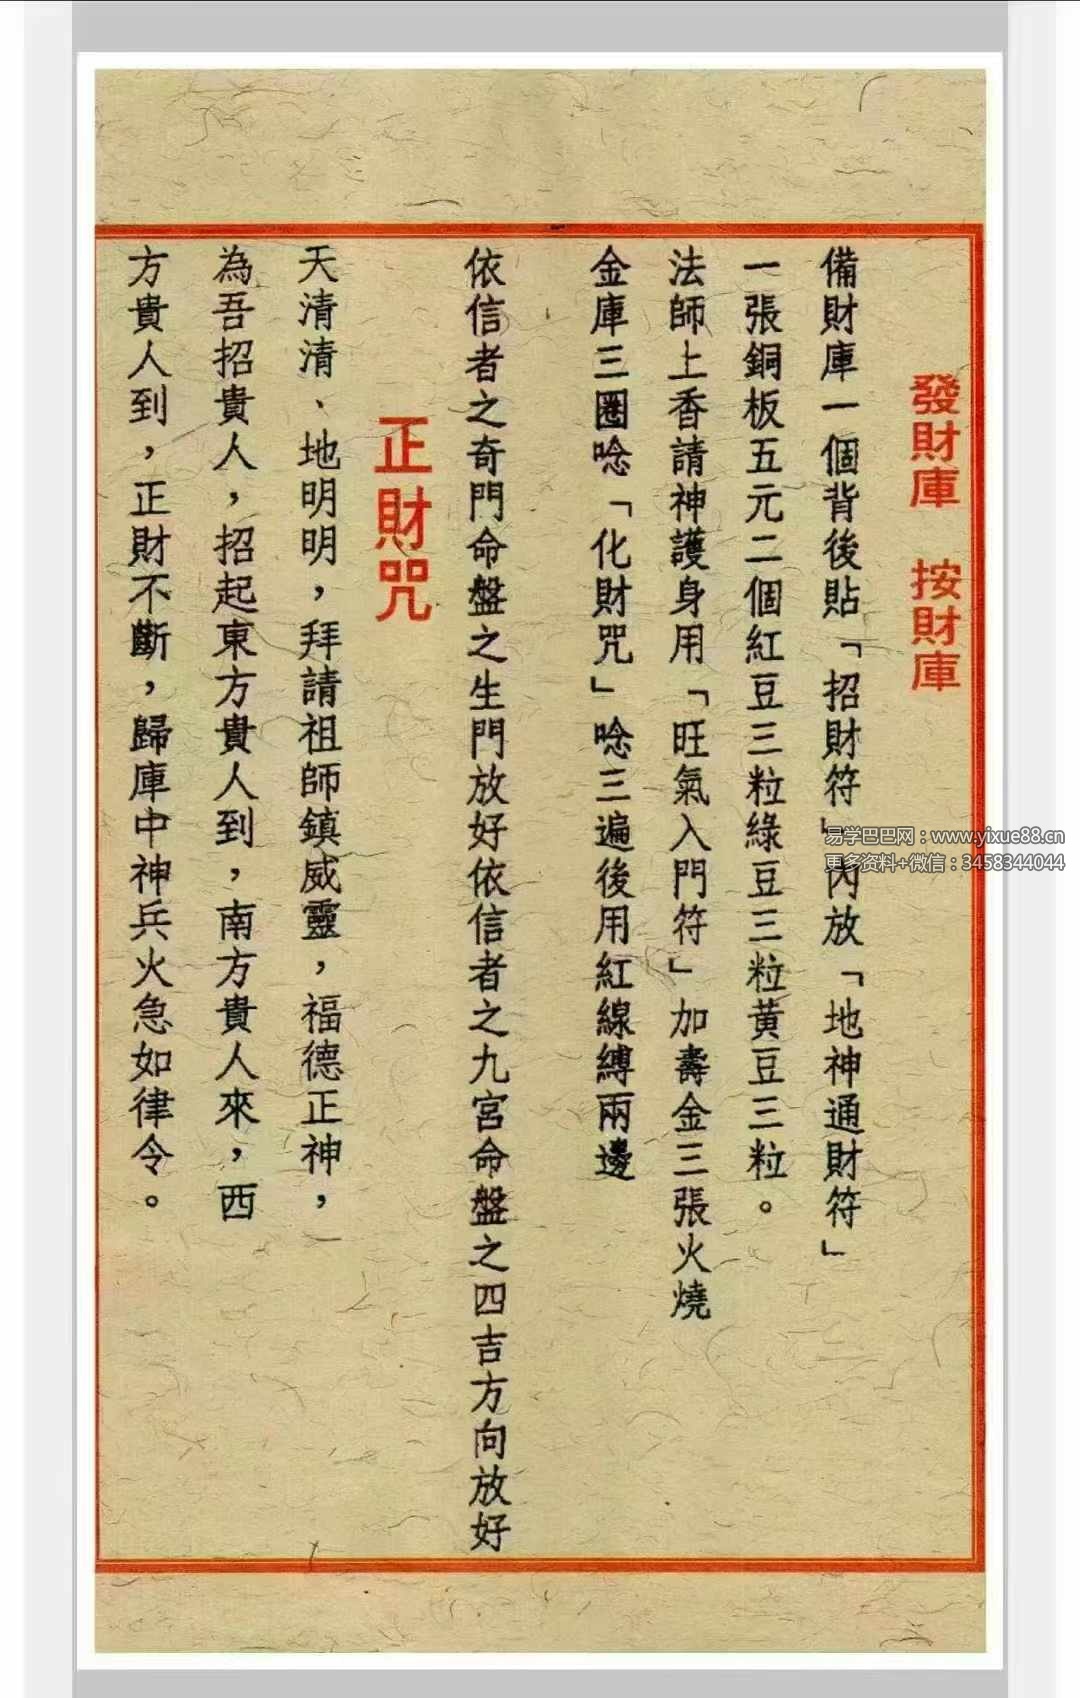 發財庫　按財庫
備財庫一個背後貼「招財符」內放「地神通財符」
一張銅板五元二個紅豆三粒綠豆三粒黃豆三粒。
法師上香請神護身用「旺氣入門符」加壽金三張火燒
金庫三圈唸「化財咒」唸三遍後用紅線縛兩邊
依信者之奇門命盤之生門放好依信者之九宮命盤之四吉方向放好
正財咒
天清清、地明明，拜請祖師鎮威靈，福德正神，
為吾招貴人，招起東方貴人到，南方貴人來，西
方貴人到，正財不斷，歸庫中神兵火急如律令。
易学巴巴网：www.yixue88.cn
更多资料+微信：3458344044